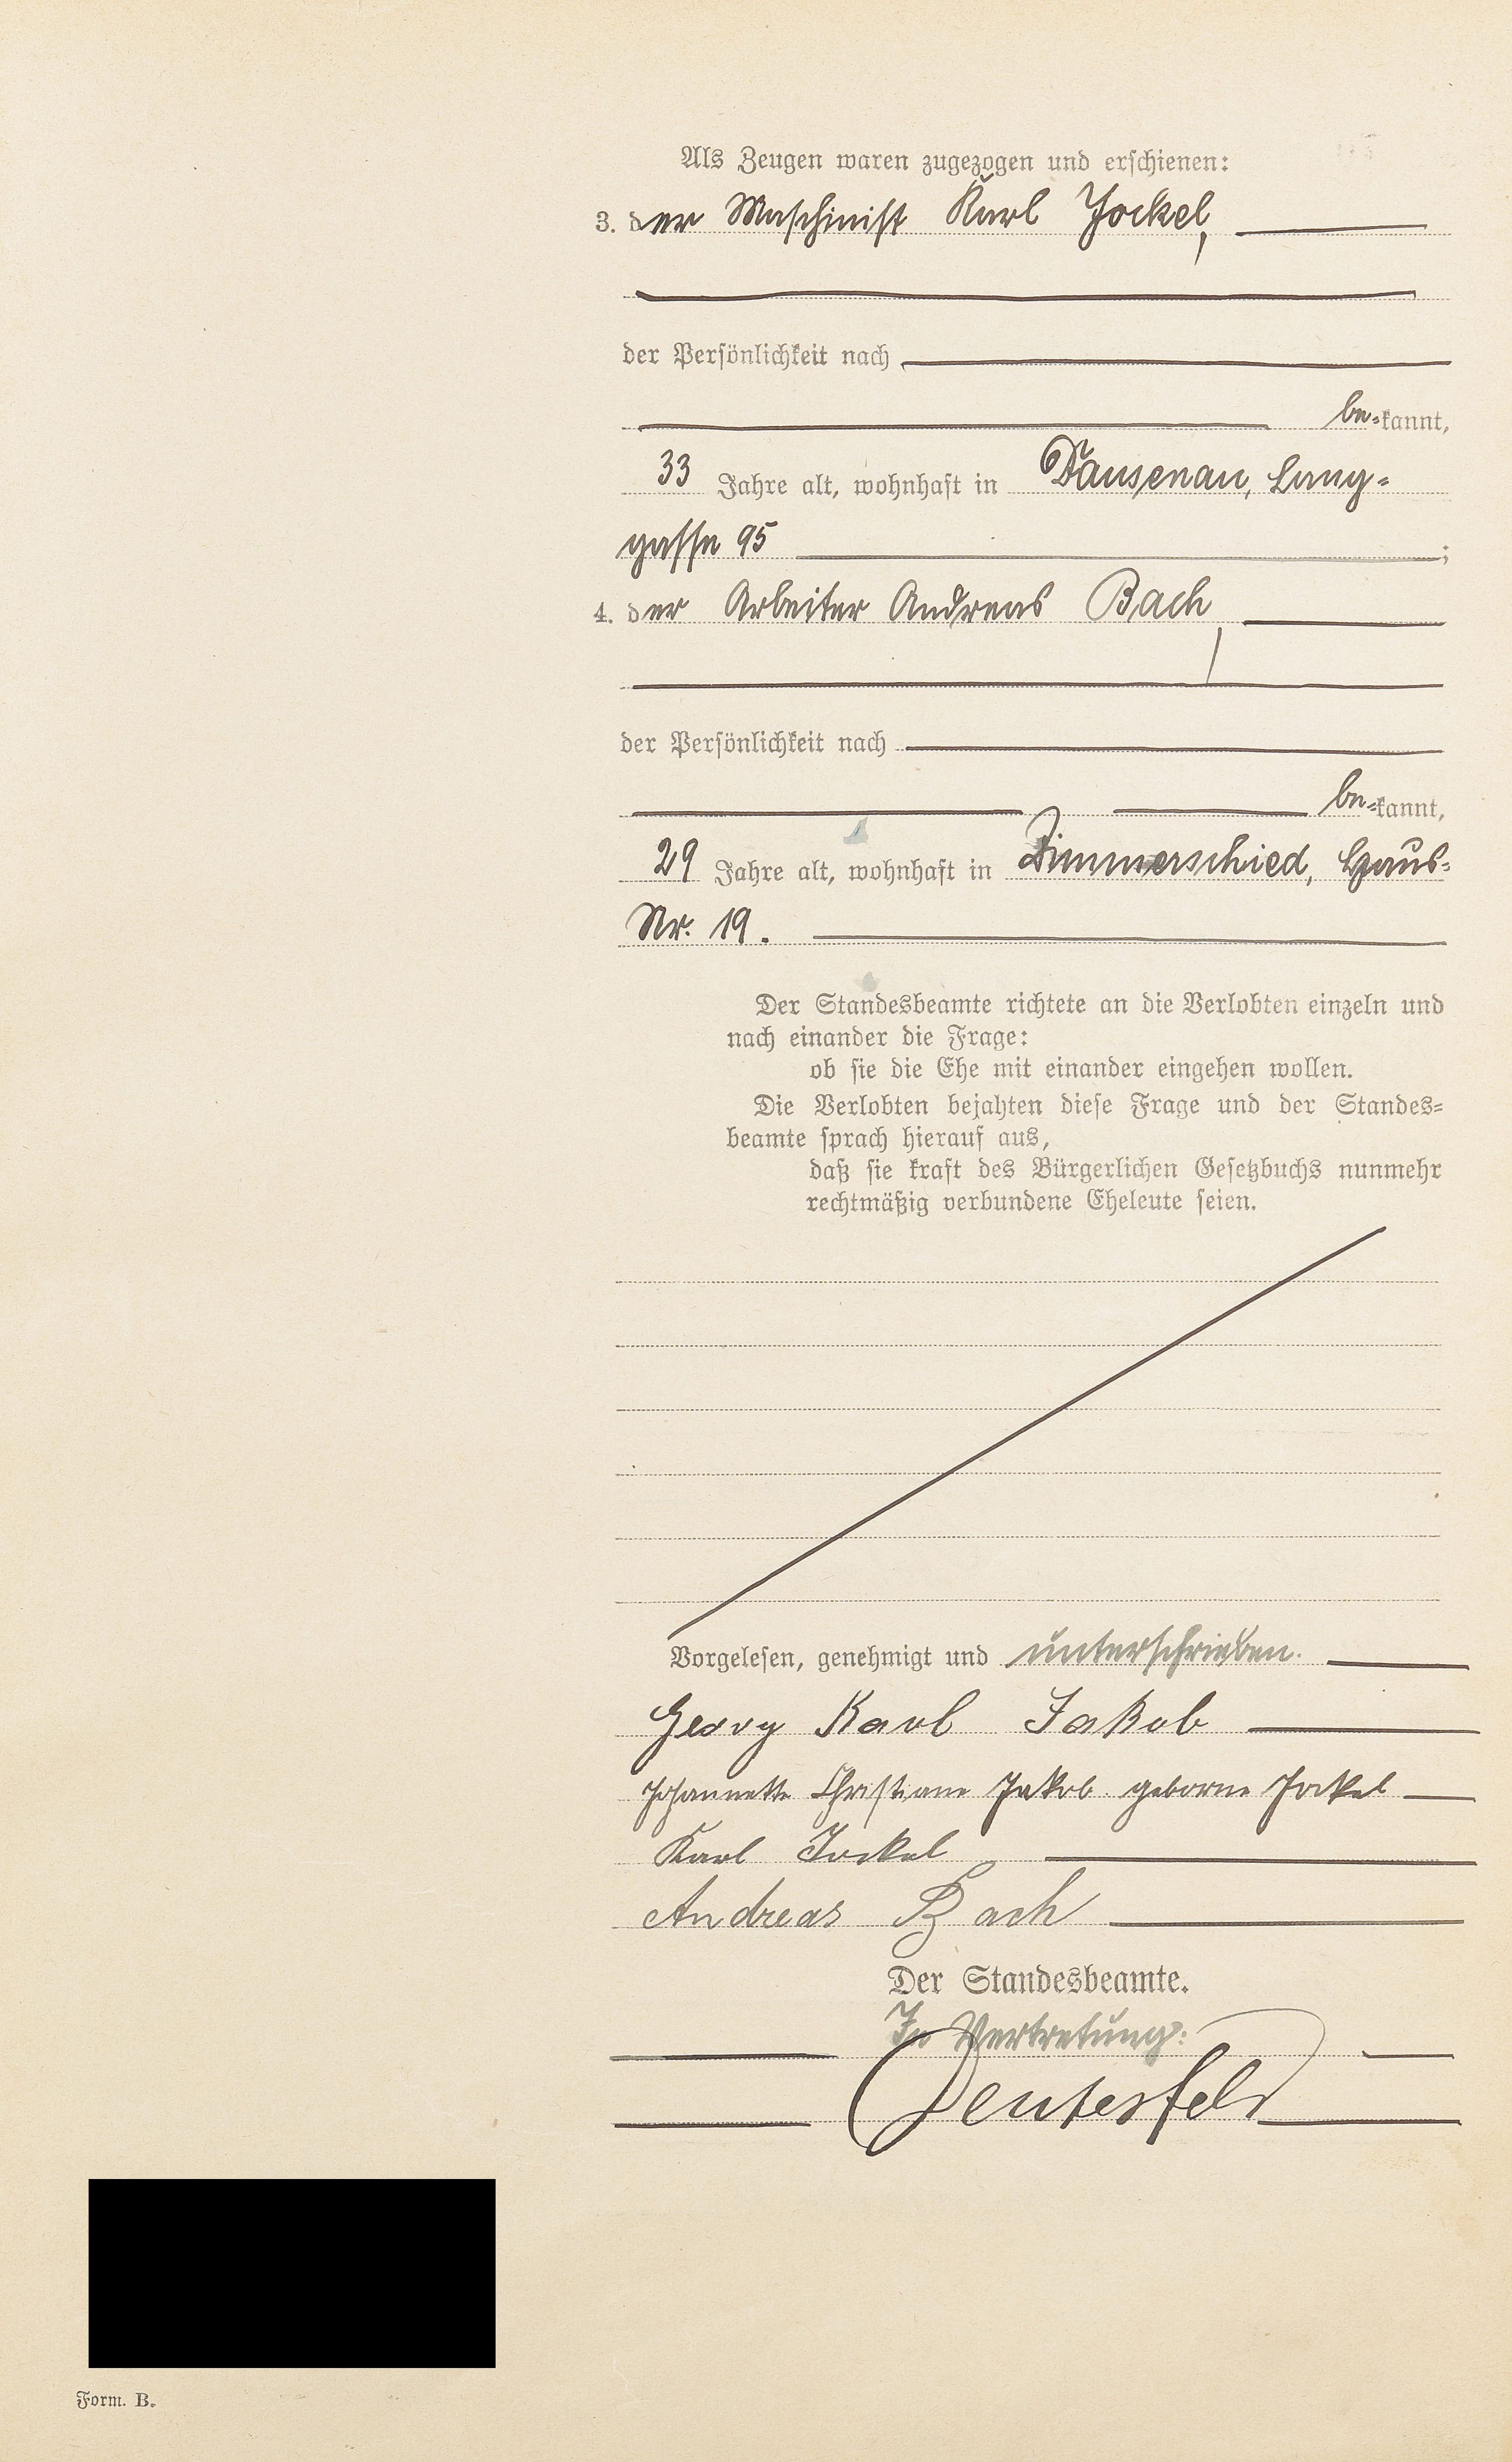 Als Zeugen waren zugezogen und erschienen:
3. der Maschinist Karl Jockel,
der Persönlichkeit nach
be=kannt,
33 Jahre alt, wohnhaft in Dausenau, Lang=
gasse 95 ;
4. der Arbeiter Andreas Bach,
der Persönlichkeit nach
be=kannt,
29 Jahre alt, wohnhaft in Zimmerschied, Haus=
Nr. 19.
Der Standesbeamte richtete an die Verlobten einzeln und
nach einander die Frage:
ob sie die Ehe mit einander eingehen wollen.
Die Verlobten bejahten diese Frage und der Standes=
beamte sprach hierauf aus,
daß sie kraft des Bürgerlichen Gesetzbuchs nunmehr
rechtmäßig verbundene Eheleute seien.
Vorgelesen, genehmigt und unterschrieben.
Georg Karl Jakob
Johannette Christiane Jakob geborne Jockel
Karl Jockel
Andreas Bach
Der Standesbeamte.
In Vertretung:
Deutesfeld
Form. B.